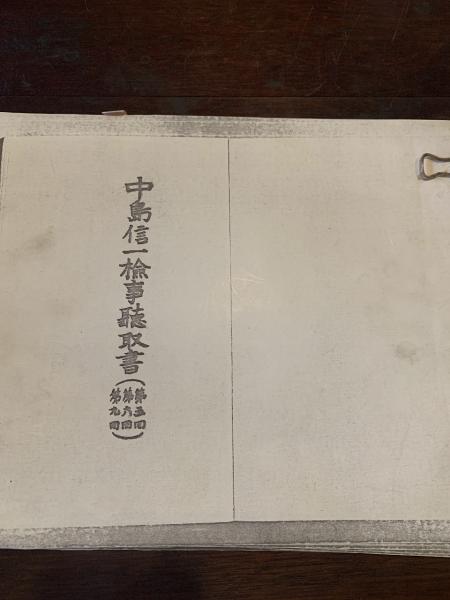 中島信一檢事聽取書
(第五回
第六回
第九回)